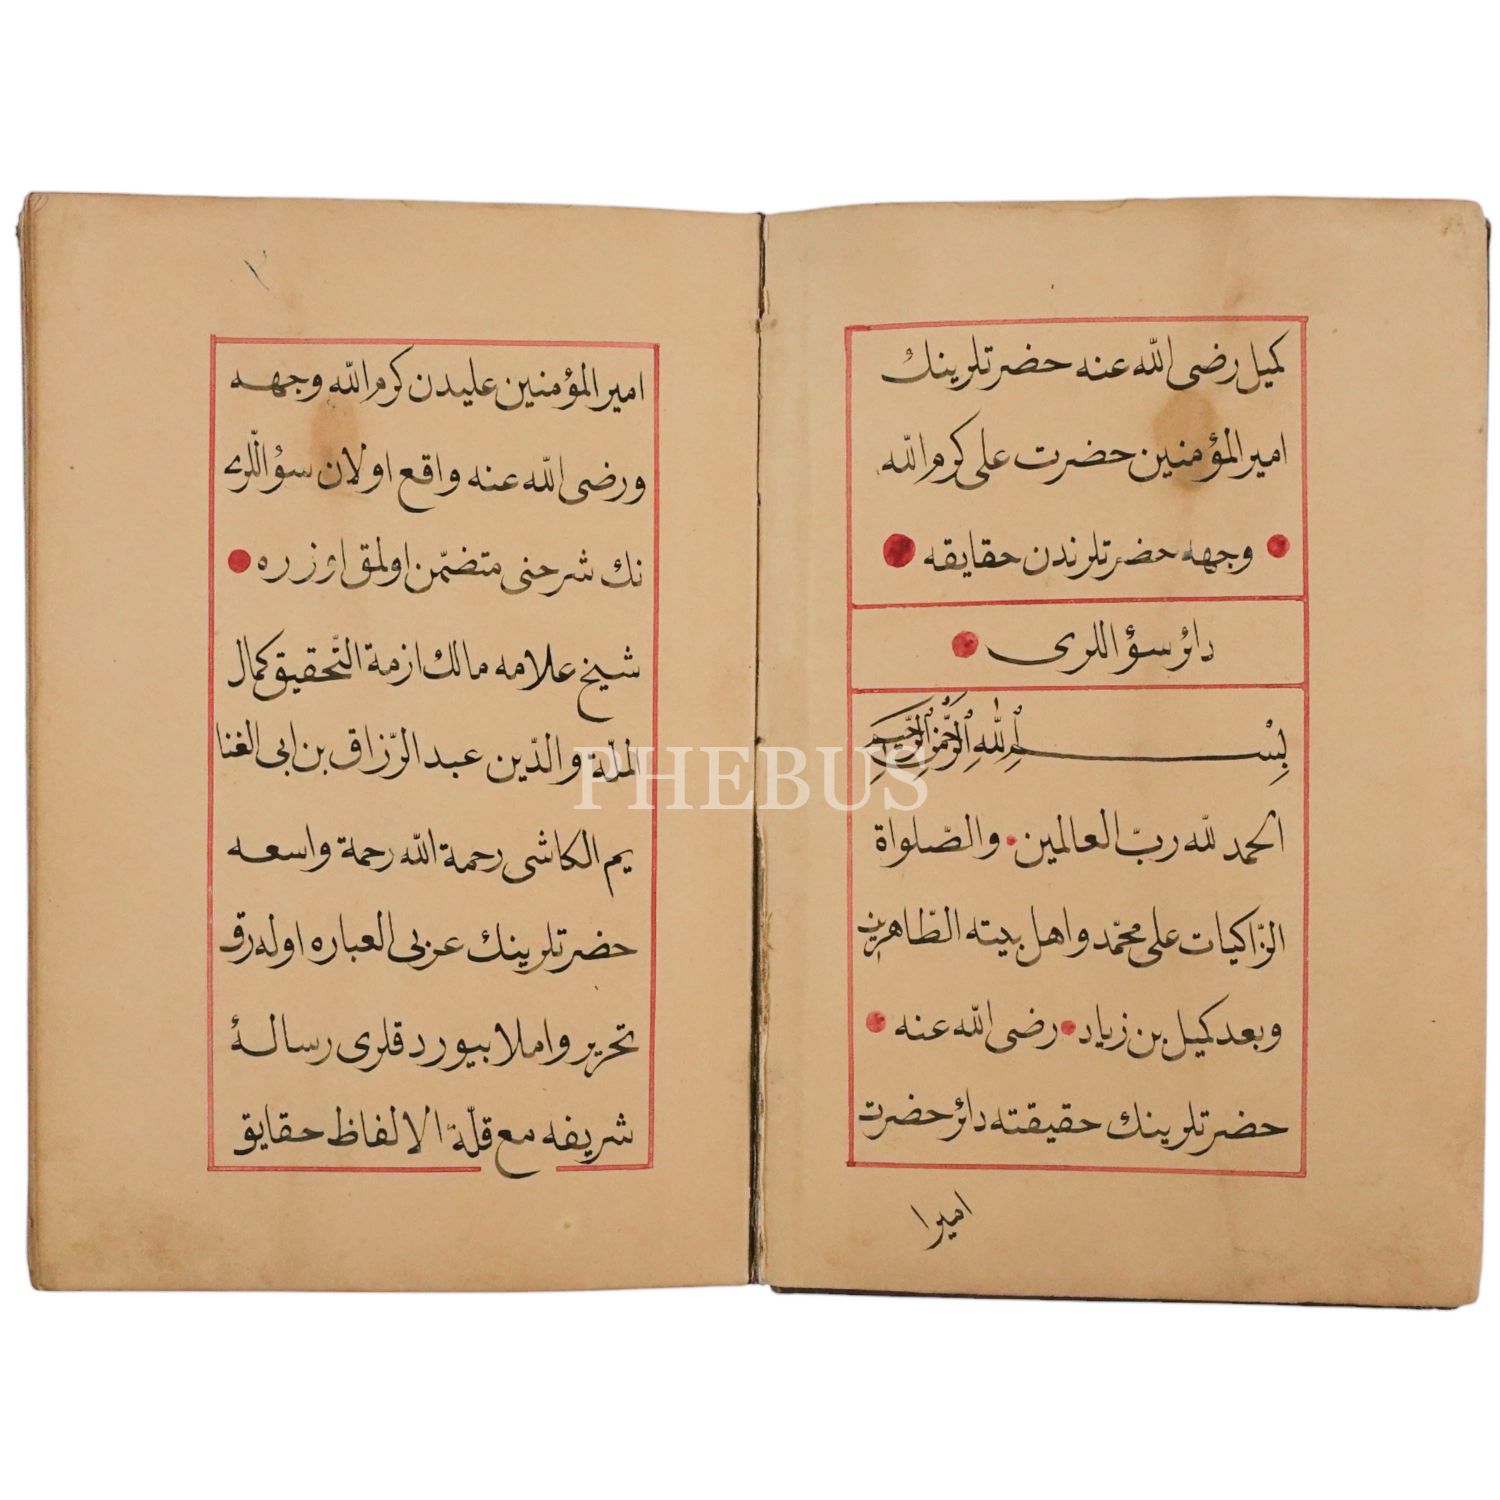 كميل رضى الله عنه حضرتلرينك
اميرالمؤمنين حضرت على كرم الله
وجهه حضرتلرندن حقايقه
دائر سؤاللرى
بِسْمِ اللهِ الرَّحْمٰنِ الرَّحِيمِ
الحمد لله ربّ العالمين والصّلواة
الزّاكيات على محمّد واهل بيته الطّاهرين
وبعد كميل بن زياد رضى الله عنه
حضرتلرينك حقيقته دائر حضرت
اميرا
اميرالمؤمنين عليدن كرم الله وجهه
ورضى الله عنه واقع اولان سؤاللّرى
نك شرحنى متضمّن اولمق اوزره
شيخ علامه مالك ازمة التّحقيق كمال
الملّة والدّين عبد الرّزاق بن ابى الغنا
يم الكاشى رحمة الله رحمة واسعه
حضرتلرينك عربى العباره اوله رق
تحرير واملا بيوردقلرى رسالهٔ
شريفه مع قلّة الالفاظ حقايق
PHEBUS